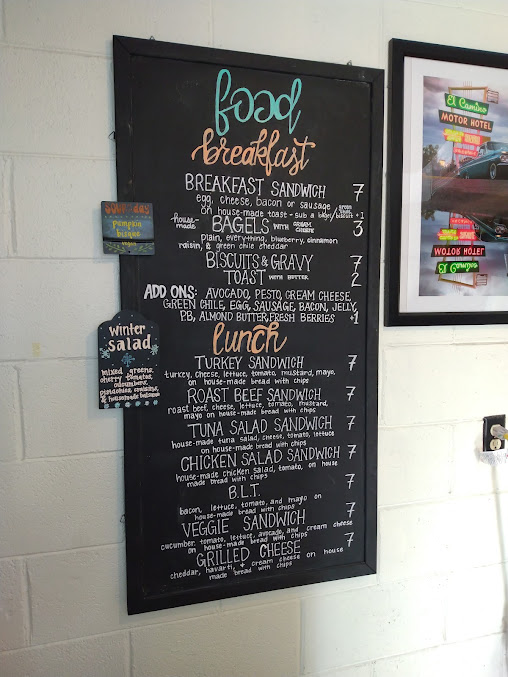 food
breakfast
BREAKFAST SANDWICH 7
egg, cheese, bacon or sausage
on house-made toast - sub a bagel/biscuit +1
house-made BAGELS WITH CREAM CHEESE 3
plain, everything, blueberry, cinnamon
raisin, & green chile cheddar
BISCUITS & GRAVY 7
TOAST WITH BUTTER 2
ADD ONS: AVOCADO, PESTO, CREAM CHEESE,
GREEN CHILE, EGG, SAUSAGE, BACON, JELLY,
P.B, ALMOND BUTTER, FRESH BERRIES +1
lunch
TURKEY SANDWICH 7
turkey, cheese, lettuce, tomato, mustard, mayo,
on house-made bread with chips
ROAST BEEF SANDWICH 7
roast beef, cheese, lettuce, tomato, mustard,
mayo on house-made bread with chips
TUNA SALAD SANDWICH 7
house-made tuna salad, cheese, tomato, lettuce
on house-made bread with chips
CHICKEN SALAD SANDWICH 7
house-made chicken salad, tomato, on house
made bread with chips
B.L.T. 7
bacon, lettuce, tomato, and mayo on
house-made bread with chips
VEGGIE SANDWICH 7
cucumber, tomato, lettuce, avocado, and cream cheese
on house-made bread with chips
GRILLED CHEESE 7
cheddar, havarti, & cream cheese on house
made bread with chips
pumpkin
bisque
Winter
salad
mixed greens,
cherry tomatoes,
cucumbers,
pistachios,
& housemade balsamic
El Camino
MOTOR HOTEL
MOTOR HOTEL
El Camino